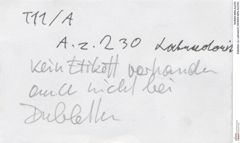 T11/A
A.z. 230 Labradorit
kein Etikett vorhanden
auch nicht bei
Dubletten